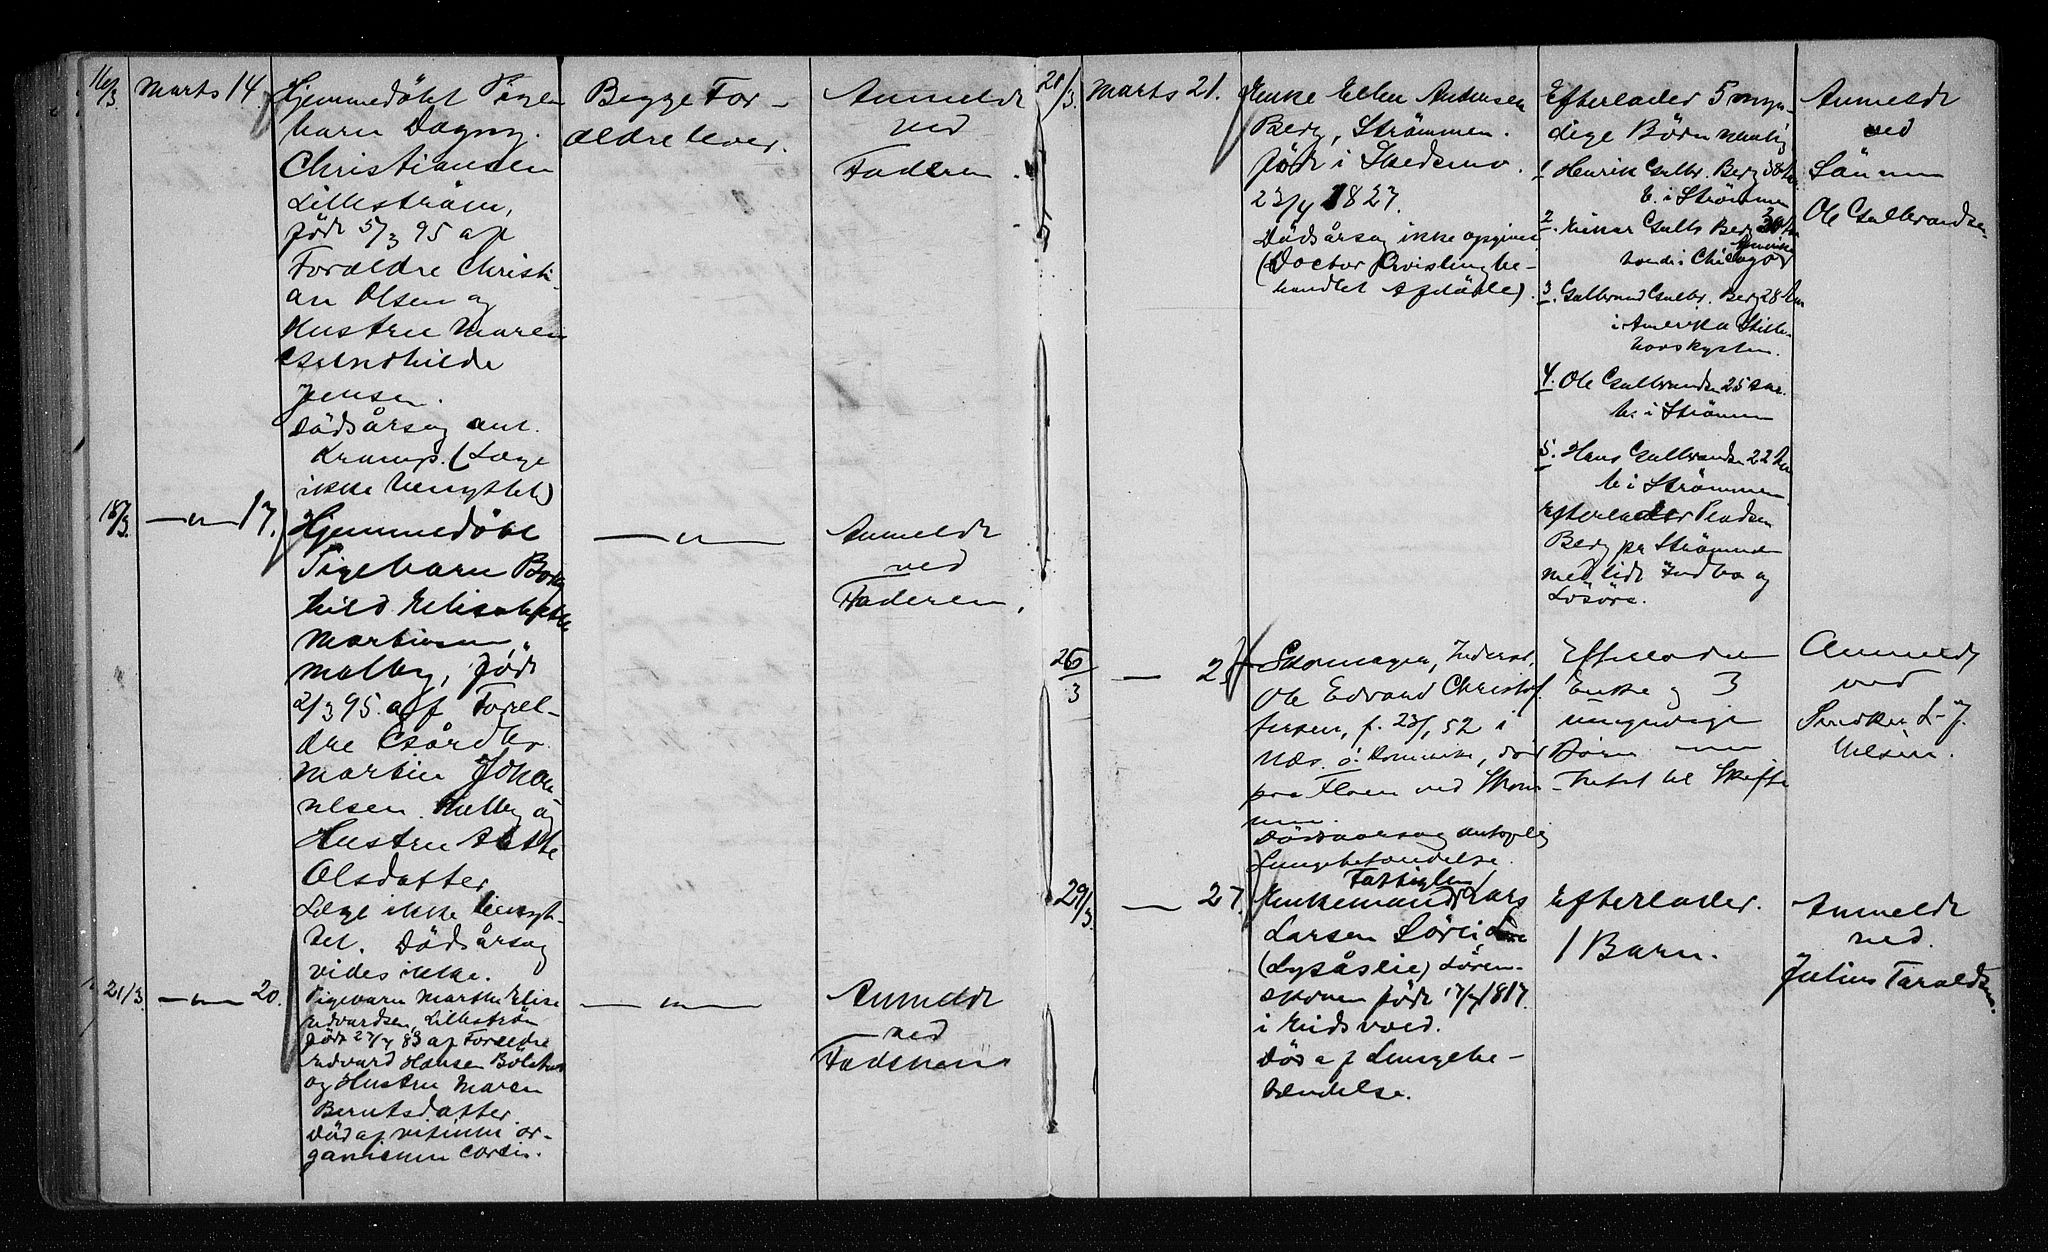 16/3
Marts 14.
Hjemmedøbt Pige
barn Dagny
Christiansen
Lillestrøm,
født 5/3 95 af
Foraldre Christi-
an Olsen og
Hustru Maren
Jensen.
Dødsårsag ant.
Krampe. (Læge
ikke benyttet)
Begge For-
ældre lever.
Anmeldt
ved
Faderen.
18/3
—"— 17.
Hjemmedøbt
Pigebarn Borg
hild Elisabeth
Martinsen,
født
2/3 95. af Forel-
dre Gårdbr.
Martin Johan
nesen og
Hustru
Olsdatter
Læge ikke benyt-
tet. Dødsårsag
vides ikke.
—"—
Anmeldt
ved
Faderen,
21/3
—"— 20.
Pigebarn Marthe Elise
Edvardsen, Lillestrøm
født 27/4 83 af Foreldre
Edvard Hansen
og Hustru Maren
Berntsdatter.
Død af vitium or-
ganicum cordis.
—"—
Anmeldt
ved
Faderen
21/3
Marts 21.
Enke Ellen Andersen
Berg, Strømmen.
født i Skedsmo.
23/4 1827.
Dødsårsag ikke opgivet
(Doctor Qvisling be-
handlet Afdøde).
Efterlader 5 myn-
dige Børn nemlig
1. Henrik Gulbr. Berg 38 År
b. i Strømmen
2. Einar Gulb. Berg
boende i Chicago Amerika
3. Gulbrand Gulbr. Berg 28 År
i Amerika Stille-
havskysten.
4. Ole Gulbrandsen 25 Aar.
b. i Strømmen
5. Hans Gulbrandsen 22 År
b. i Strømmen
Efterlader Pladsen
Berg pr Strømmen
med lidt Indbo og
Løsøre.
Anmeldt
ved
Sønnen
Ole Gulbrandsen
26/3
—
Skomager, Inderst,
Ole Edvard Christof
fersen, f. 23/1 52 i
Næs. ø. Romerike, død
paa Floen ved Strøm
men.
Dødsaarsag antagelig
Lungebetændelse.
Efterlader
Enke og 3
umyndige
Børn
Intet til Skifte
Anmeldt
ved
Snedker L. J.
Nilsen.
29/3
— 27.
Fattiglem
Enkemand Lars
Larsen
(Lysåslie) Løren-
skoven født 17/4 1817.
i Eidsvold.
Død af Lungebe-
tændelse.
Efterlader.
1 Barn.
Anmeldt
ved.
Julius Taraldsen.